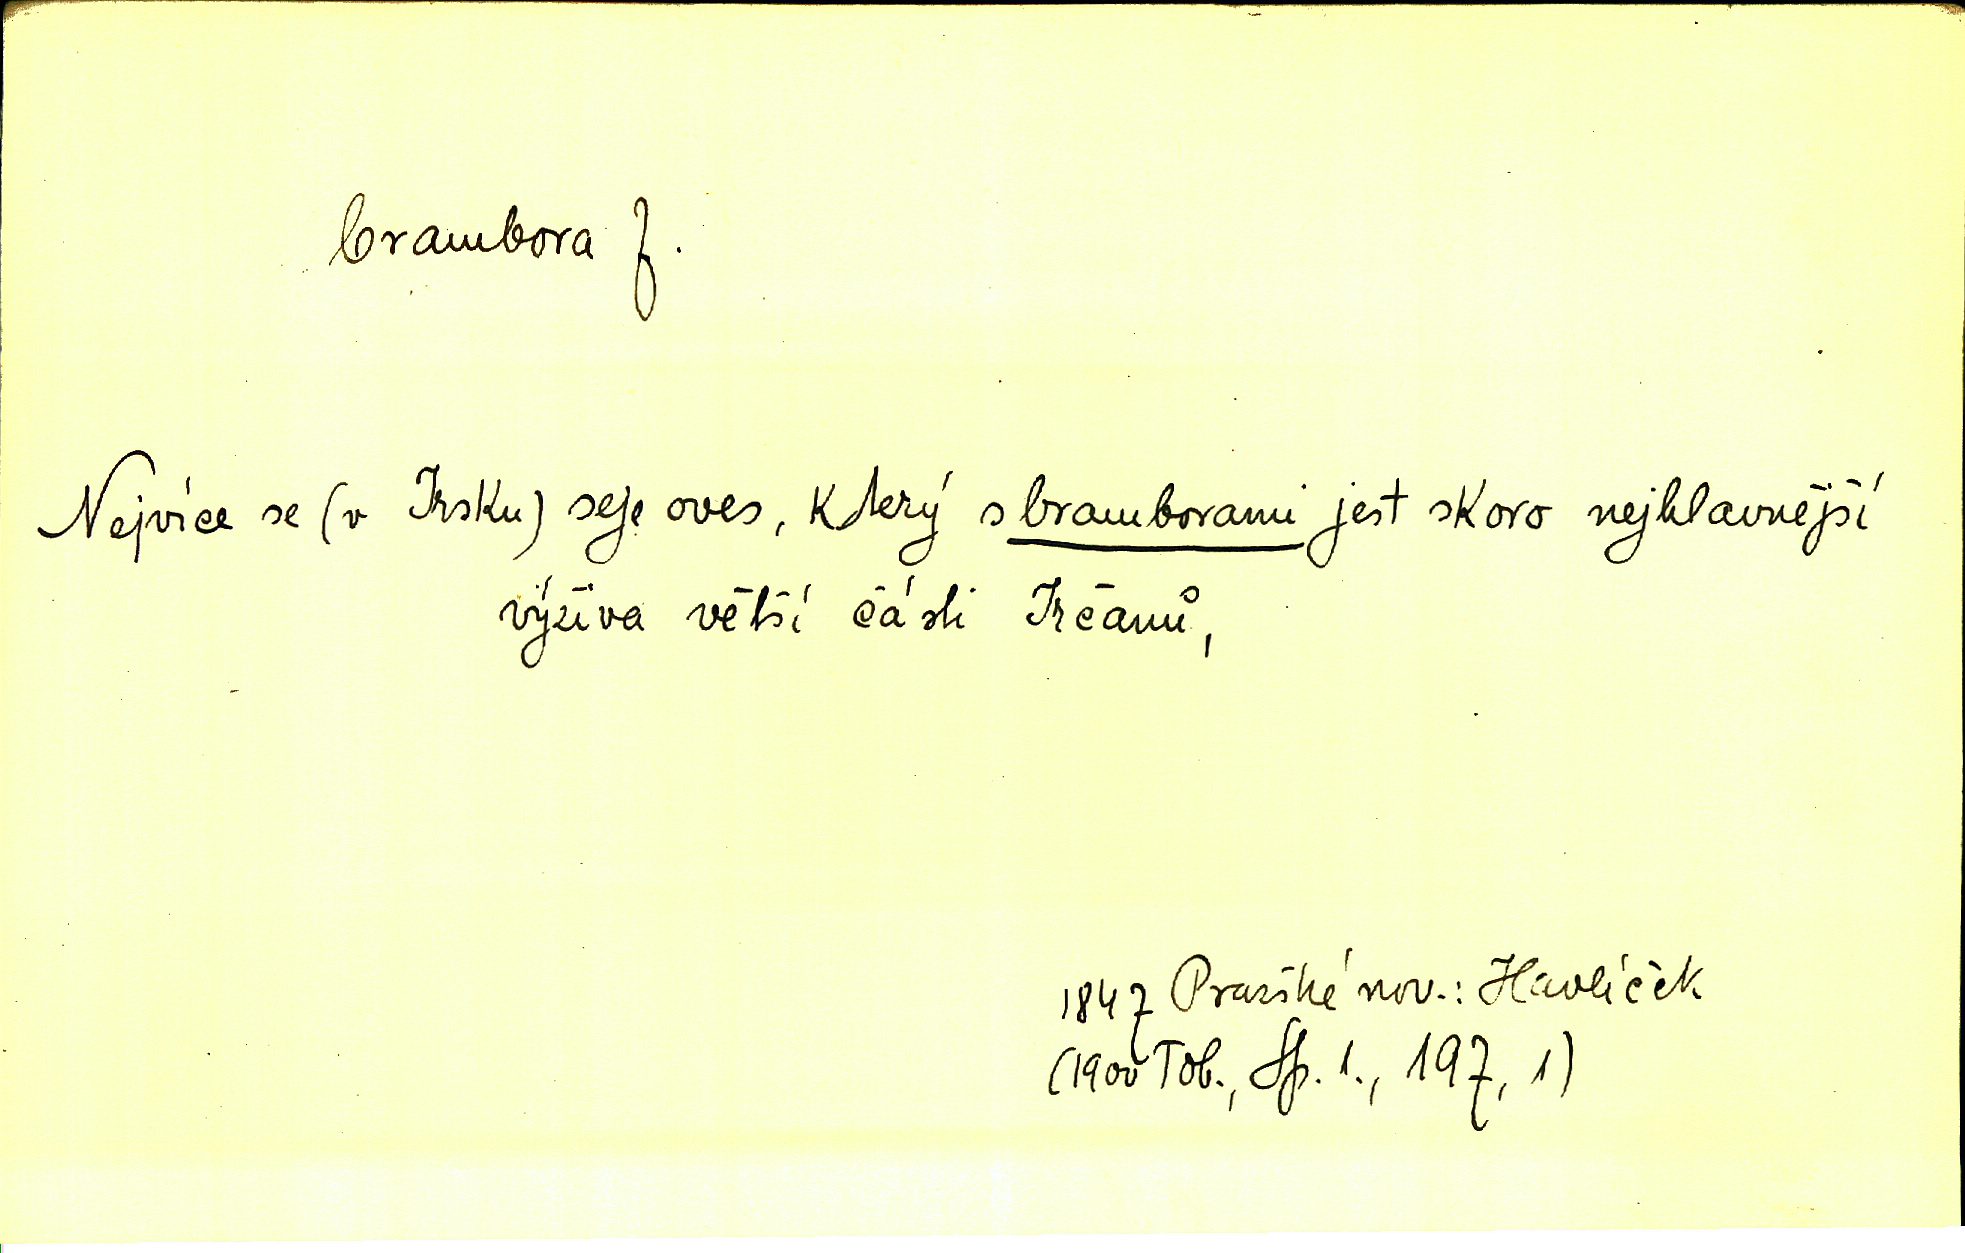 brambora f.
Nejvíce se (v Irsku) seje oves, který s bramborami jest skoro nejhlavnější
výživa větší části Irčanů,
1847 Pražské nov.: Havlíček
(1900 Tob., Sp. 1., 197, 1)